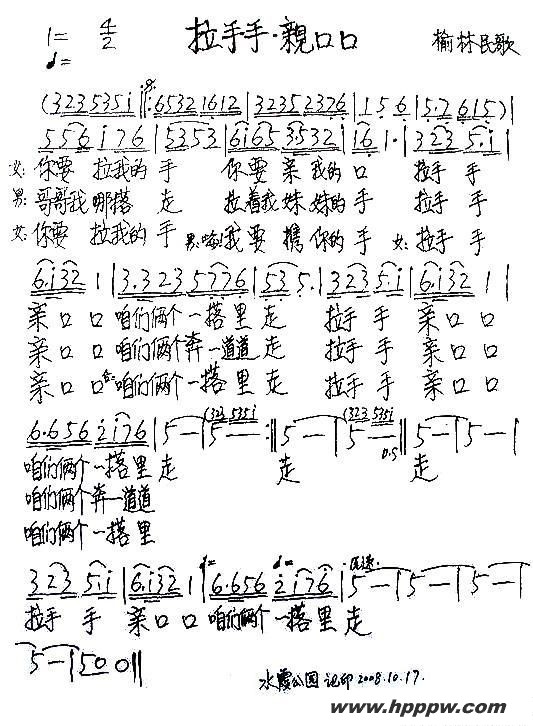 1= 4/2 拉手手·親口口 榆林民歌
(323535i ‖: 6532 1612 | 32352376 | 1 5 6 | 5.7 615) |
5 5 6 i 7 6 | 5353 | 6i65 3532 | i6 1. | 323 5.i |
女:你要 拉我的 手 你要 亲 我的 口 拉手 手
男:哥哥我 哪搭 走 拉着我 妹妹的 手 拉手 手
女:你要 拉我的 手 我要 携 你的 手 女:拉手 手
6.i32 1 | 3.323 5776 | 53 5. | 323 5.i | 6.i32 1 |
亲口 口 咱们俩个 一搭里 走 拉手 手 亲口 口
亲口 口 咱们俩个奔 一道道 走 拉手 手 亲口 口
亲口 口 合:咱们俩个 一搭里 走 拉手 手 亲口 口
6.656 2i76 | 5 — | 5 — :‖ 5 — | 5 — ‖ 5 — | 5 — |
(323 535i (323 535i
咱们俩个 一搭里 走 走 走
咱们俩个奔 一道道
咱们俩个 一搭里
323 5.i | 6.i32 1 | 6.656 2i76 | 5 — | 5 — | 5 — |
拉手 手 亲口 口 咱们俩个 一搭里 走
5 — | 5 0 0 ‖
水霞公园 记印 2008.10.17.
www.hpppw.com